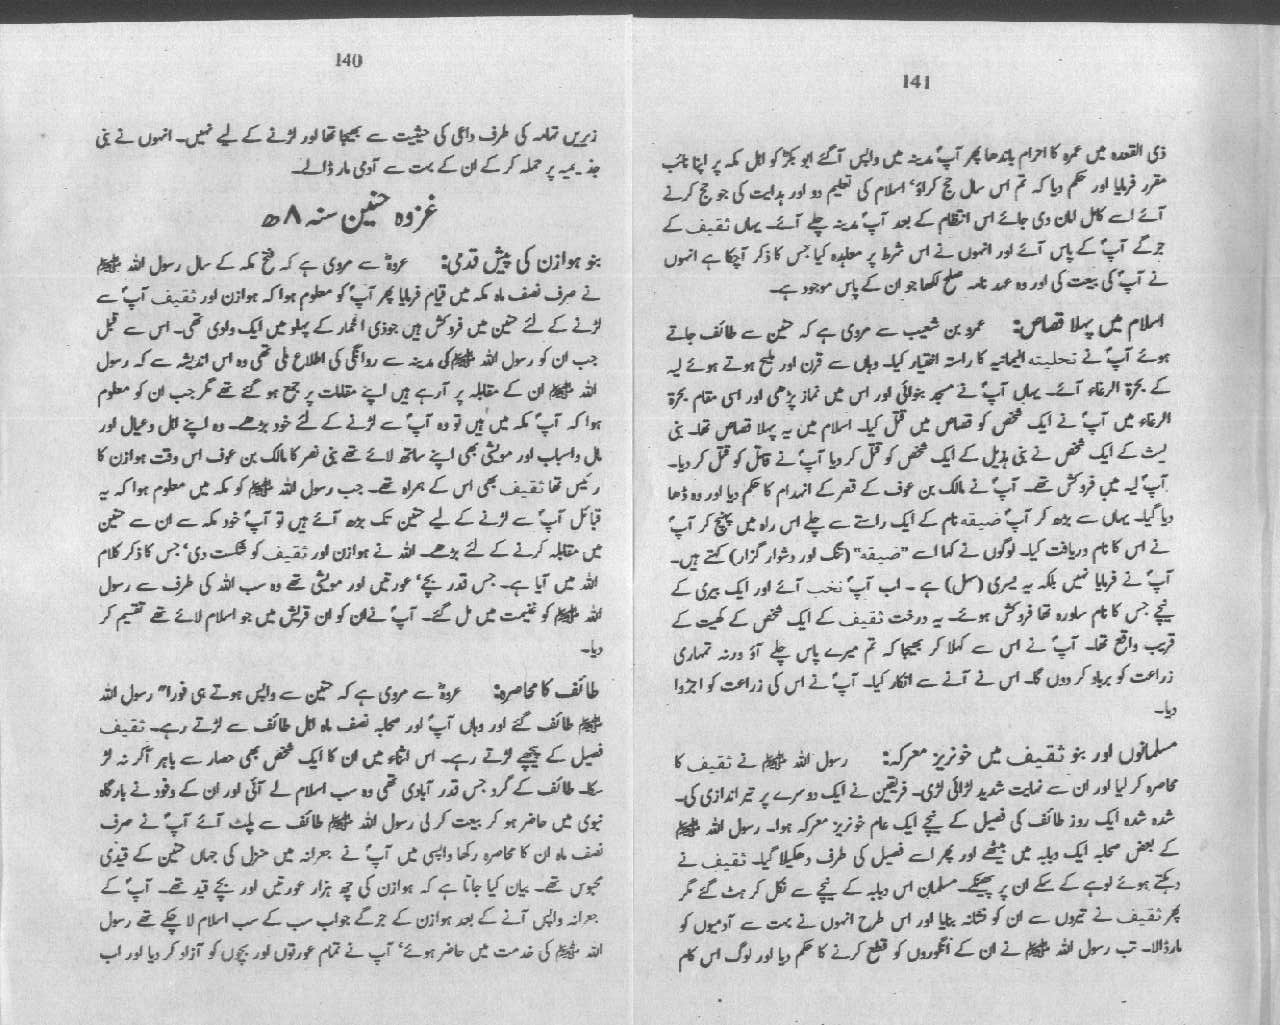 140
زیریں تہامہ کی طرف داعی کی حیثیت سے بھیجا تھا اور لڑنے کے لیے نہیں۔ انہوں نے بنی
جذیمہ پر حملہ کر کے ان کے بہت سے آدمی مار ڈالے۔
غزوہ حنین سنہ ۸ھ
بنو ہوازن کی پیش قدمی: عروہؓ سے مروی ہے کہ فتح مکہ کے سال رسول اللہ ﷺ
نے صرف نصف ماہ مکہ میں قیام فرمایا پھر آپؐ کو معلوم ہوا کہ ہوازن اور ثقیف آپؐ سے
لڑنے کے لئے حنین میں فروکش ہیں جو ذی الجماز کے پہلو میں ایک وادی تھی۔ اس سے قبل
جب ان کو رسول اللہ ﷺ کی مدینہ سے روانگی کی اطلاع ملی تھی وہ اس اندیشہ سے کہ رسول
اللہ ﷺ ان کے مقابلہ پر آرہے ہیں اپنے مقامات پر جمع ہو گئے تھے مگر جب ان کو معلوم
ہوا کہ آپؐ مکہ میں ہیں تو وہ آپؐ سے لڑنے کے لئے خود بڑھے۔ وہ اپنے اہل و عیال اور
مال و اسباب اور مویشی بھی اپنے ساتھ لائے تھے بنی نصر کا مالک بن عوف اس وقت ہوازن کا
رئیس تھا ثقیف بھی اس کے ہمراہ تھے۔ جب رسول اللہ ﷺ کو مکہ میں معلوم ہوا کہ یہ
قبائل آپؐ سے لڑنے کے لیے حنین تک بڑھ آئے ہیں تو آپؐ خود مکہ سے ان سے حنین
میں مقابلہ کرنے کے لئے بڑھے۔ اللہ نے ہوازن اور ثقیف کو شکست دی‘ جس کا ذکر کلام
اللہ میں آیا ہے۔ جس قدر بچے‘ عورتیں اور مویشی تھے وہ سب اللہ کی طرف سے رسول
اللہ ﷺ کو غنیمت میں مل گئے۔ آپؐ نے ان کو ان قریش میں جو اسلام لائے تھے تقسیم کر
دیا۔
طائف کا محاصرہ: عروہؓ سے مروی ہے کہ حنین سے واپس ہوتے ہی فوراً رسول اللہ
ﷺ طائف گئے اور وہاں آپؐ اور صحابہ نصف ماہ اہل طائف سے لڑتے رہے۔ ثقیف
فصیل کے پیچھے لڑتے رہے۔ اس اثناء میں ان کا ایک شخص بھی حصار سے باہر آکر نہ لڑ
سکا۔ طائف کے گرد جس قدر آبادی تھی وہ سب اسلام لے آئی اور ان کے وفود نے بارگاہ
نبوی میں حاضر ہو کر بیعت کر لی رسول اللہ ﷺ طائف سے پلٹ آئے آپؐ نے صرف
نصف ماہ ان کا محاصرہ رکھا واپسی میں آپؐ نے جعرانہ میں منزل کی جہاں حنین کے قیدی
محبوس تھے۔ بیان کیا جاتا ہے کہ ہوازن کی چھ ہزار عورتیں اور بچے قید تھے۔ آپؐ کے
جعرانہ واپس آنے کے بعد ہوازن کے جرگے جواب سب کے سب اسلام لا چکے تھے رسول
اللہ ﷺ کی خدمت میں حاضر ہوئے‘ آپ نے تمام عورتوں اور بچوں کو آزاد کر دیا اور اب
141
ذی القعدہ میں عمرہ کا احرام باندھا پھر آپؐ مدینہ میں واپس آگئے ابوبکرؓ کو اہل مکہ پر اپنا نائب
مقرر فرمایا اور حکم دیا کہ تم اس سال حج کراؤ‘ اسلام کی تعلیم دو اور ہدایت کی جو حج کرنے
آئے اسے کامل امان دی جائے اس انتظام کے بعد آپؐ مدینہ چلے آئے۔ یہاں ثقیف کے
جرگے آپؐ کے پاس آئے اور انہوں نے اس شرط پر معاہدہ کیا جس کا ذکر آچکا ہے انہوں
نے آپؐ کی بیعت کی اور وہ عہد نامہ صلح لکھا جو ان کے پاس موجود ہے۔
اسلام میں پہلا قصاص: عمرو بن شعیب سے مروی ہے کہ حنین سے طائف جاتے
ہوئے آپؐ نے نخلیتہ الیمانیہ کا راستہ اختیار کیا۔ وہاں سے قرن اور ملیح ہوتے ہوئے لیہ
کے بحرۃ الرغاء آئے۔ یہاں آپؐ نے مسجد بنوائی اور اس میں نماز پڑھی اور اسی مقام بحرۃ
الرغاء میں آپؐ نے ایک شخص کو قصاص میں قتل کیا۔ اسلام میں یہ پہلا قصاص تھا۔ بنی
لیث کے ایک شخص نے بنی ہذیل کے ایک شخص کو قتل کر دیا آپؐ نے قاتل کو قتل کر دیا۔
آپؐ لیہ میں فروکش تھے۔ آپؐ نے مالک بن عوف کے قصر کے انہدام کا حکم دیا اور وہ ڈھا
دیا گیا۔ یہاں سے بڑھ کر آپؐ ضیقہ نام کے ایک راستے سے چلے اس راہ میں پہنچ کر آپؐ
نے اس کا نام دریافت کیا۔ لوگوں نے کہا اسے "ضیقہ" (تنگ اور دشوار گزار) کہتے ہیں۔
آپؐ نے فرمایا نہیں بلکہ یہ یسری (سہل) ہے۔ اب آپؐ نخب آئے اور ایک بیری کے
نیچے جس کا نام ساورہ تھا فروکش ہوئے۔ یہ درخت ثقیف کے ایک شخص کے کھیت کے
قریب واقع تھا۔ آپؐ نے اس سے کہلا کر بھیجا کہ تم میرے پاس چلے آؤ ورنہ تمہاری
زراعت کو برباد کر دوں گا۔ اس نے آنے سے انکار کیا۔ آپؐ نے اس کی زراعت کو اجڑوا
دیا۔
مسلمانوں اور بنو ثقیف میں خونریز معرکہ: رسول اللہ ﷺ نے ثقیف کا
محاصرہ کر لیا اور ان سے نہایت شدید لڑائی لڑی۔ فریقین نے ایک دوسرے پر تیر اندازی کی۔
شدہ شدہ ایک روز طائف کی فصیل کے نیچے ایک عام خونریز معرکہ ہوا۔ رسول اللہ ﷺ
کے بعض صحابہ ایک دبابہ میں بیٹھے اور پھر اسے فصیل کی طرف دھکیلا گیا۔ ثقیف نے
دہکتے ہوئے لوہے کے سکے ان پر پھینکے۔ مسلمان اس دبابہ کے نیچے سے نکل کر ہٹ گئے مگر
پھر ثقیف نے تیروں سے ان کو نشانہ بنایا اور اس طرح انہوں نے بہت سے آدمیوں کو
مار ڈالا۔ تب رسول اللہ ﷺ نے ان کے انگوروں کو قطع کرنے کا حکم دیا اور لوگ اس کام